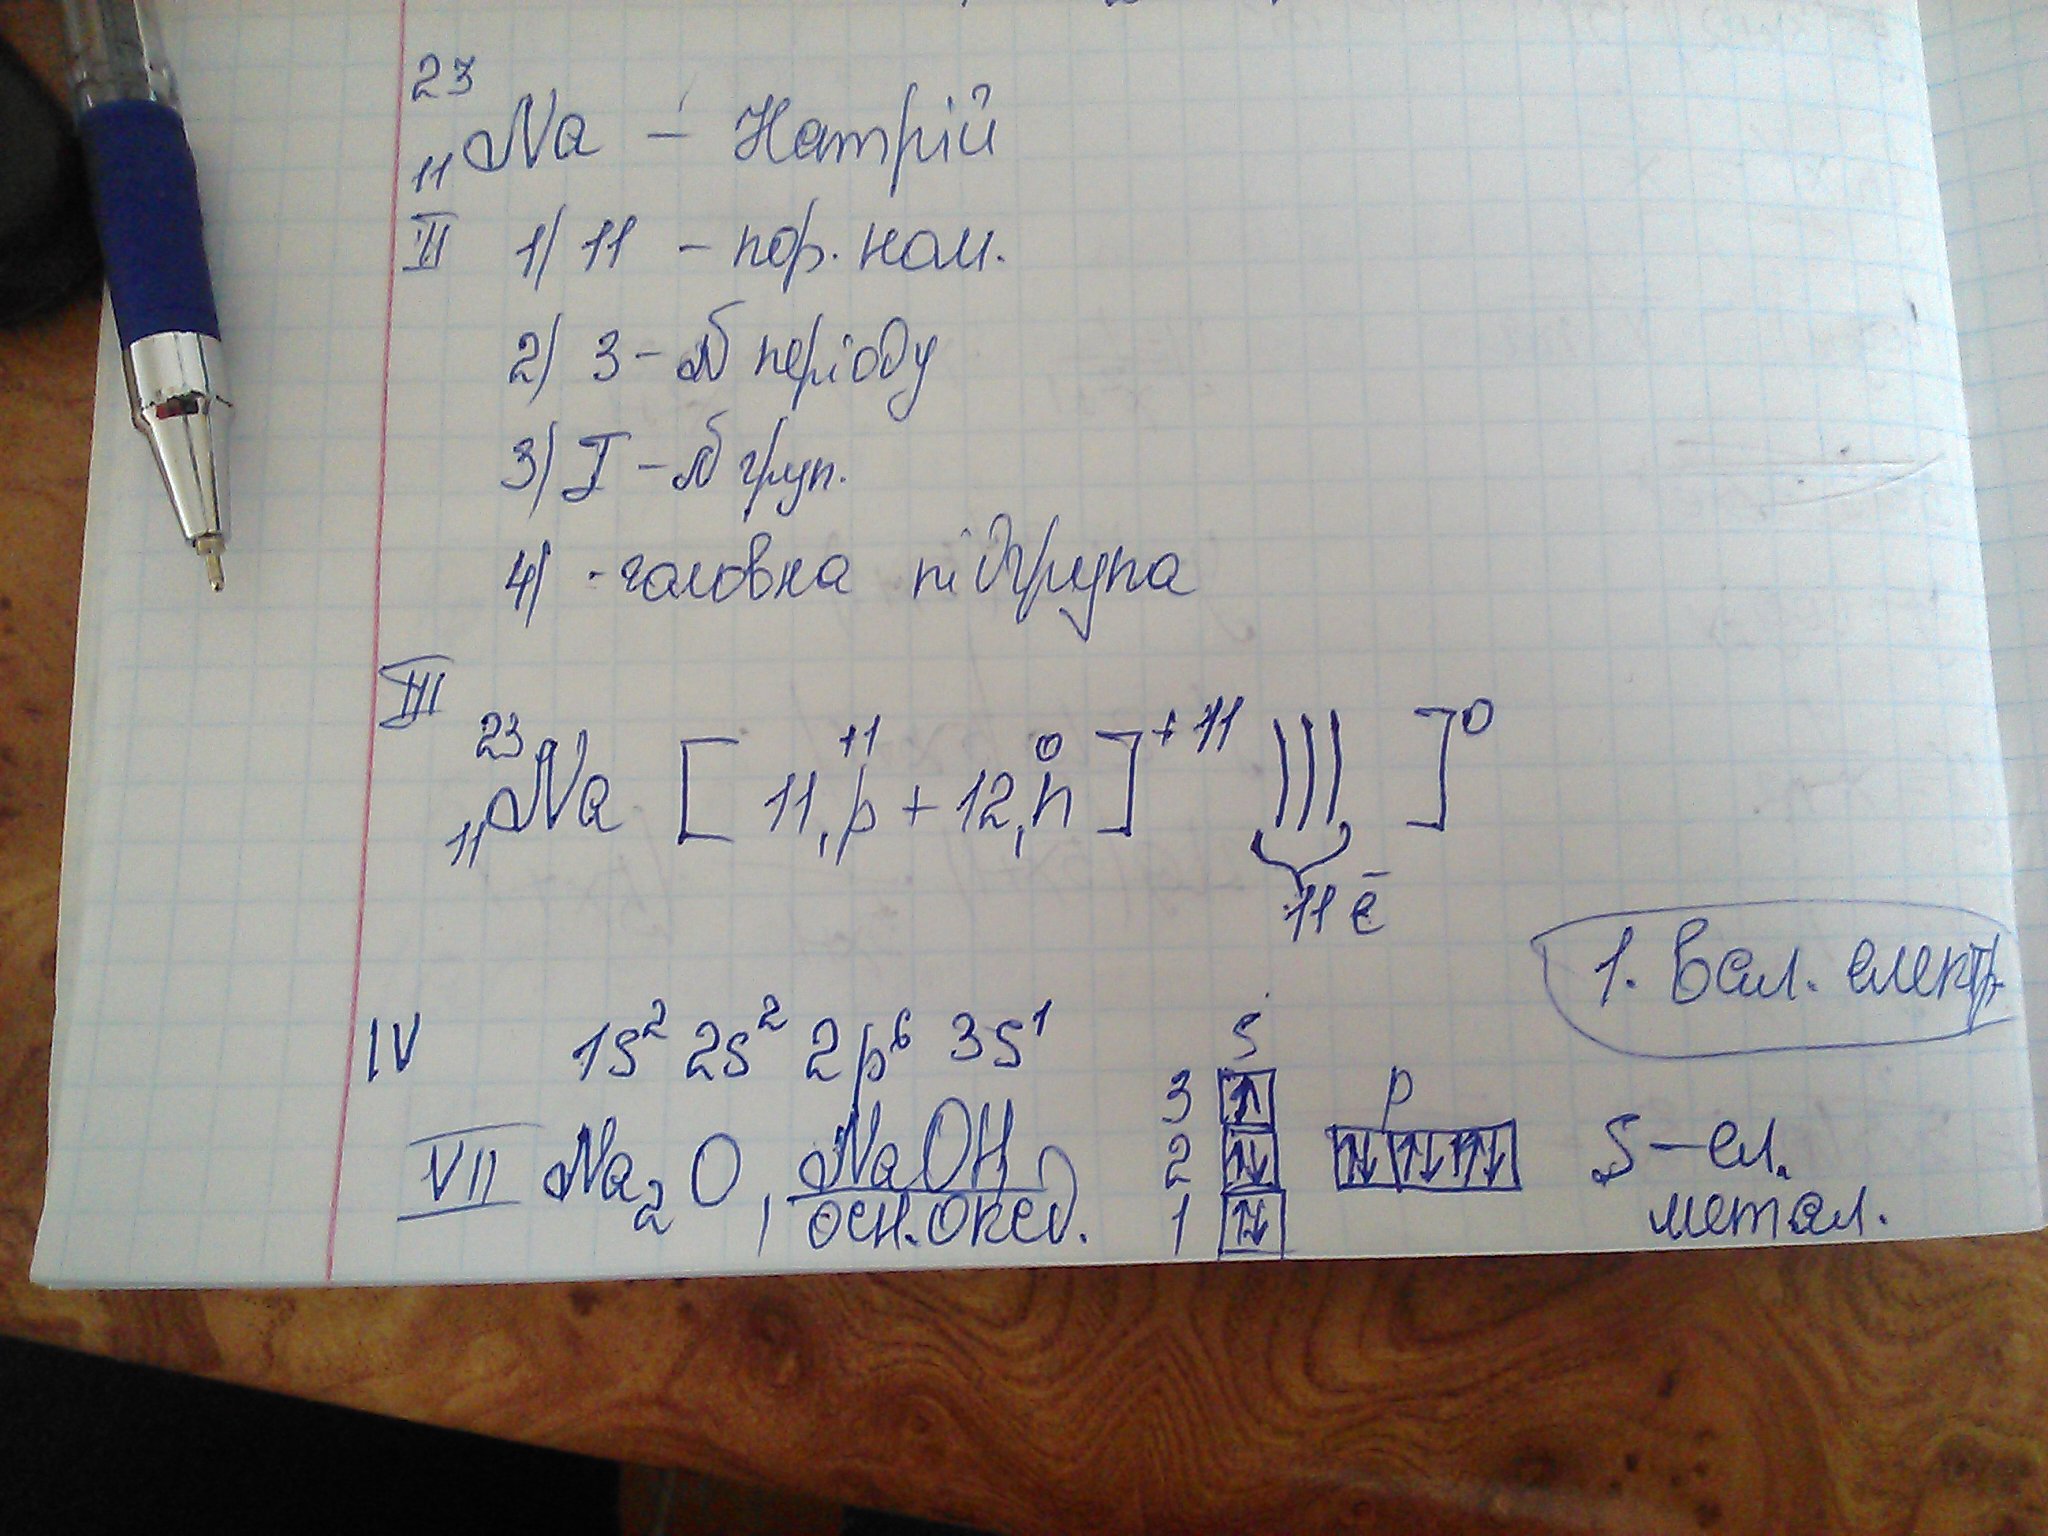 23
11Na – Натрій
II 1) 11 – пор. ном.
2) 3 – № періоду
3) I – № груп.
4) - головна підгрупа
III
23 11Na [ 11, p +1 + 12, n 0 ] +11 ))) ] 0
11 ē
1. Вал. електр.
IV 1s² 2s² 2p⁶ 3s¹
s
3 ↑
p
2 ↑↓ ↑↓ ↑↓ ↑↓
1 ↑↓
s – ел.
метал.
VII Na₂O, NaOH
осн. оксд.